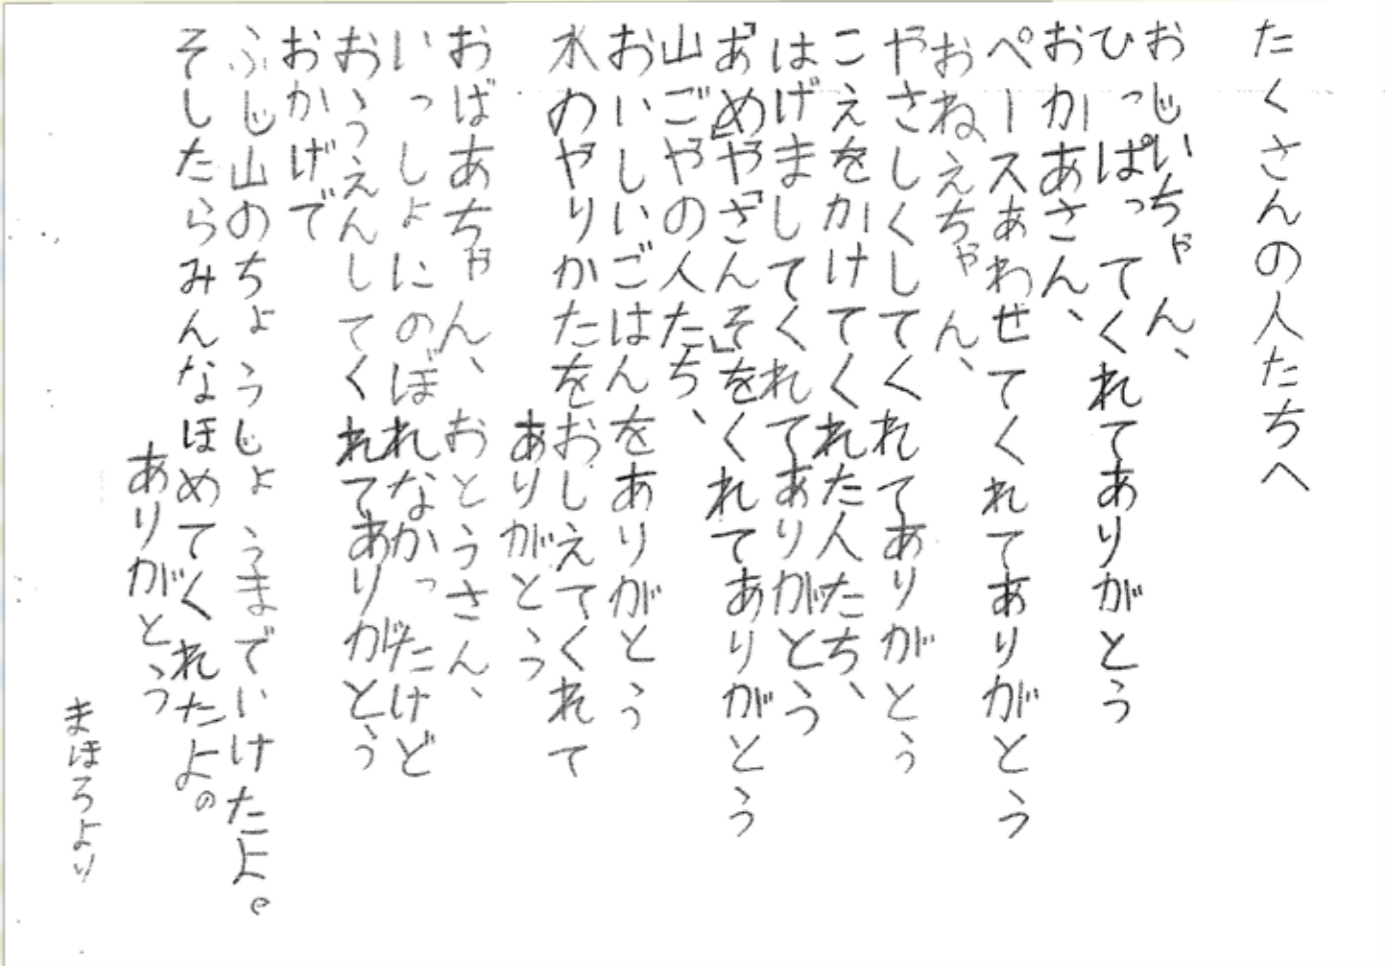 たくさんの人たちへ
おじいちゃん、
ひっぱってくれてありがとう
おかあさん、
ペースあわせてくれてありがとう
おねえちゃん、
やさしくしてくれてありがとう
こえをかけてくれた人たち、
はげましてくれてありがとう
「あめ」や「ざんそ」をくれてありがとう
山ごやの人たち、
おいしいごはんをありがとう
水のやりかたをおしえてくれて
ありがとう
おばあちゃん、おとうさん、
いっしょにのぼれなかったけど
おうえんしてくれてありがとう
おかげで
ふじ山のちょうじょうまでいけたよ。
そしたらみんなほめてくれたよ。
ありがとう
まほろより